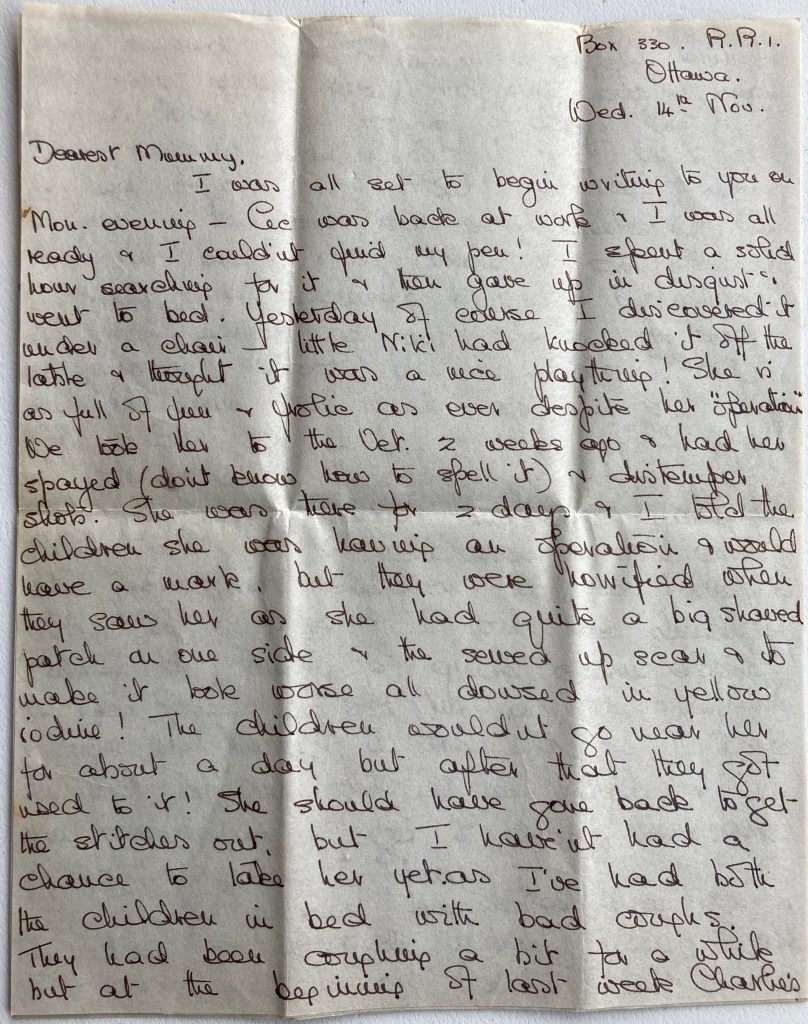 Box 330. R.R.1.
Ottawa.
Wed. 14th Nov.
Dearest Mommy.
I was all set to begin writing to you on
Mon. evening – Cec was back at work & I was all
ready & I could'nt find my pen! I spent a solid
hour searching for it & then gave up in disgust &
went to bed. Yesterday of course I discovered it
under a chair – little Niki had knocked it off the
table & thought it was a nice plaything! She is
as full of fun & frolic as ever despite her "operation"
We took her to the Vet. 2 weeks ago & had her
spayed (don't know how to spell it) & distemper
shots. She was there for 2 days & I told the
children she was having an operation & would
have a mark, but they were horrified when
they saw her as she had quite a big shaved
patch on one side & the sewed up scar & to
make it look worse all dowsed in yellow
iodine! The children would'nt go near her
for about a day but after that they got
used to it! She should have gone back to get
the stitches out, but I have'nt had a
chance to take her yet.as I've had both
the children in bed with bad coughs.
They had been coughing a bit for a while
but at the beginning of last week Charlie's